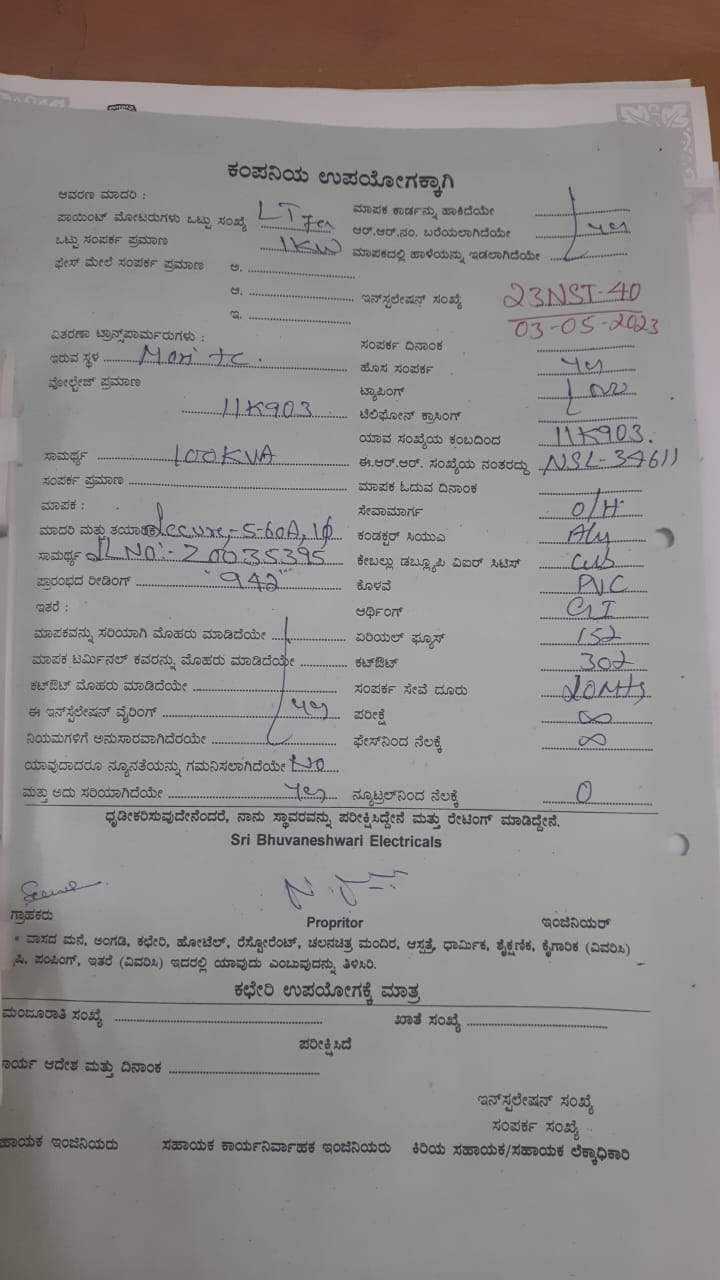 ಕಂಪನಿಯ ಉಪಯೋಗಕ್ಕಾಗಿ
ಆವರಣ ಮಾದರಿ :
ಮಾಪಕ ಕಾರ್ಡನ್ನು ಹಾಕಿದೆಯೇ
ಪಾಯಿಂಟ್ ಮೋಟರುಗಳು ಒಟ್ಟು ಸಂಖ್ಯೆ LT
ಆರ್.ಆರ್.ನಂ. ಬರೆಯಲಾಗಿದೆಯೇ yes
ಒಟ್ಟು ಸಂಪರ್ಕ ಪ್ರಮಾಣ 1KW
ಮಾಪಕದಲ್ಲಿ ಹಾಳೆಯನ್ನು ಇಡಲಾಗಿದೆಯೇ
ಫೇಸ್ ಮೇಲೆ ಸಂಪರ್ಕ ಪ್ರಮಾಣ ಅ.
ಆ.
ಇನ್‌ಸ್ಪಲೇಷನ್ ಸಂಖ್ಯೆ 23NST-40
ಇ.
03-05-2023
ವಿತರಣಾ ಟ್ರಾನ್ಸ್‌ಪಾರ್ಮರುಗಳು :
ಸಂಪರ್ಕ ದಿನಾಂಕ
ಇರುವ ಸ್ಥಳ
ಹೊಸ ಸಂಪರ್ಕ yes
ವೋಲ್ಟೇಜ್ ಪ್ರಮಾಣ
ಟ್ಯಾಪಿಂಗ್
11K903
ಟೆಲಿಫೋನ್ ಕ್ರಾಸಿಂಗ್
ಯಾವ ಸಂಖ್ಯೆಯ ಕಂಬದಿಂದ 11K903.
ಸಾಮರ್ಥ್ಯ 100KVA
ಈ.ಆರ್.ಆರ್. ಸಂಖ್ಯೆಯ ನಂತರದ್ದು NSL-34611
ಸಂಪರ್ಕ ಪ್ರಮಾಣ
ಮಾಪಕ ಓದುವ ದಿನಾಂಕ
ಮಾಪಕ :
ಸೇವಾಮಾರ್ಗ O/H
ಮಾದರಿ ಮತ್ತು ತಯಾರಕ secure,-5-60A,1ϕ
ಕಂಡಕ್ಟರ್ ಸಿಯುಎ Aly
ಸಾಮರ್ಥ್ಯ SL No:-20035395
ಕೇಬಲ್ಲು ಡಬ್ಲ್ಯೂಪಿ ವಿಐರ್ ಸಿಟಿಸ್
ಪ್ರಾರಂಭದ ರೀಡಿಂಗ್ "942"
ಕೊಳವೆ PVC
ಇತರೆ :
ಆರ್ಥಿಂಗ್ GI
ಮಾಪಕವನ್ನು ಸರಿಯಾಗಿ ಮೊಹರು ಮಾಡಿದೆಯೇ
ಏರಿಯಲ್ ಫ್ಯೂಸ್
ಮಾಪಕ ಟರ್ಮಿನಲ್ ಕವರನ್ನು ಮೊಹರು ಮಾಡಿದೆಯೇ
ಕಟ್‌ಔಟ್
ಕಟ್‌ಔಟ್ ಮೊಹರು ಮಾಡಿದೆಯೇ
ಸಂಪರ್ಕ ಸೇವೆ ದೂರು 20Mts
ಈ ಇನ್‌ಸ್ಪೆಲೇಷನ್ ವೈರಿಂಗ್ yes
ಪರೀಕ್ಷೆ ∞
ನಿಯಮಗಳಿಗೆ ಅನುಸಾರವಾಗಿದೆರಯೇ
ಫೇಸ್‌ನಿಂದ ನೆಲಕ್ಕೆ ∞
ಯಾವುದಾದರೂ ನ್ಯೂನತೆಯನ್ನು ಗಮನಿಸಲಾಗಿದೆಯೇ No
ಮತ್ತು ಅದು ಸರಿಯಾಗಿದೆಯೇ yes
ನ್ಯೂಟ್ರಲ್‌ನಿಂದ ನೆಲಕ್ಕೆ 0
ಧೃಡೀಕರಿಸುವುದೇನೆಂದರೆ, ನಾನು ಸ್ಥಾವರವನ್ನು ಪರೀಕ್ಷಿಸಿದ್ದೇನೆ ಮತ್ತು ರೇಟಿಂಗ್ ಮಾಡಿದ್ದೇನೆ.
Sri Bhuvaneshwari Electricals
ಗ್ರಾಹಕರು
Propritor
ಇಂಜಿನಿಯರ್
* ವಾಸದ ಮನೆ, ಅಂಗಡಿ, ಕಛೇರಿ, ಹೋಟೆಲ್, ರೆಸ್ಟೋರೆಂಟ್, ಚಲನಚಿತ್ರ ಮಂದಿರ, ಆಸ್ಪತ್ರೆ, ಧಾರ್ಮಿಕ, ಶೈಕ್ಷಣಿಕ, ಕೈಗಾರಿಕ (ವಿವರಿಸಿ)
ಪಿ, ಪಂಪಿಂಗ್, ಇತರೆ (ವಿವರಿಸಿ) ಇದರಲ್ಲಿ ಯಾವುದು ಎಂಬುವುದನ್ನು ತಿಳಿಸಿರಿ.
ಕಛೇರಿ ಉಪಯೋಗಕ್ಕೆ ಮಾತ್ರ
ಮಂಜೂರಾತಿ ಸಂಖ್ಯೆ
ಖಾತೆ ಸಂಖ್ಯೆ
ಪರೀಕ್ಷಿಸಿದೆ
ಕಾರ್ಯ ಆದೇಶ ಮತ್ತು ದಿನಾಂಕ
ಇನ್‌ಸ್ಪಲೇಷನ್ ಸಂಖ್ಯೆ
ಸಂಪರ್ಕ ಸಂಖ್ಯೆ
ಸಹಾಯಕ ಇಂಜಿನಿಯರು ಸಹಾಯಕ ಕಾರ್ಯನಿರ್ವಾಹಕ ಇಂಜಿನಿಯರು ಕಿರಿಯ ಸಹಾಯಕ/ಸಹಾಯಕ ಲೆಕ್ಕಾಧಿಕಾರಿ